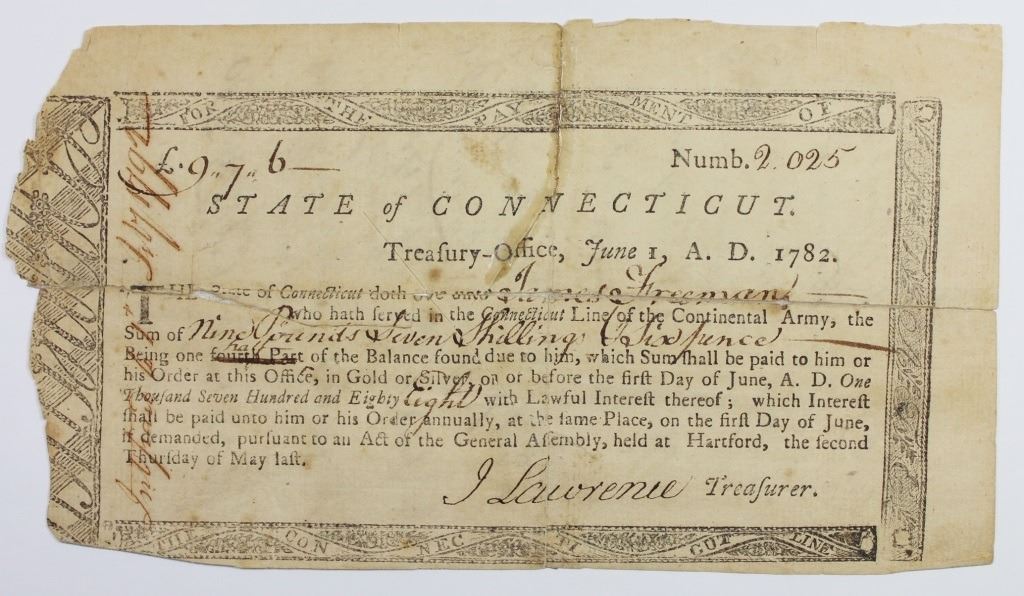 FOR THE PAY MENT OF
£. 9 „ 7 „ 6 Numb. 2.025
STATE of CONNECTICUT.
Treaſury-Office, June 1, A. D. 1782.
THE State of Connecticut doth owe unto James Freeman
who hath ſerved in the Connecticut Line of the Continental Army, the
Sum of Nine Pounds Seven Shillings & Six pence
Being one fourth Part half of the Balance found due to him, which Sum ſhall be paid to him or
his Order at this Office, in Gold or Silver, on or before the firſt Day of June, A. D. One
Thouſand Seven Hundred and Eighty Eight with Lawful Intereſt thereof; which Intereſt
ſhall be paid unto him or his Order annually, at the ſame Place, on the firſt Day of June,
if demanded, purſuant to an Act of the General Aſſembly, held at Hartford, the ſecond
Thurſday of May laſt.
J Lawrence Treaſurer.
THE CON NEC TI CUT LINE